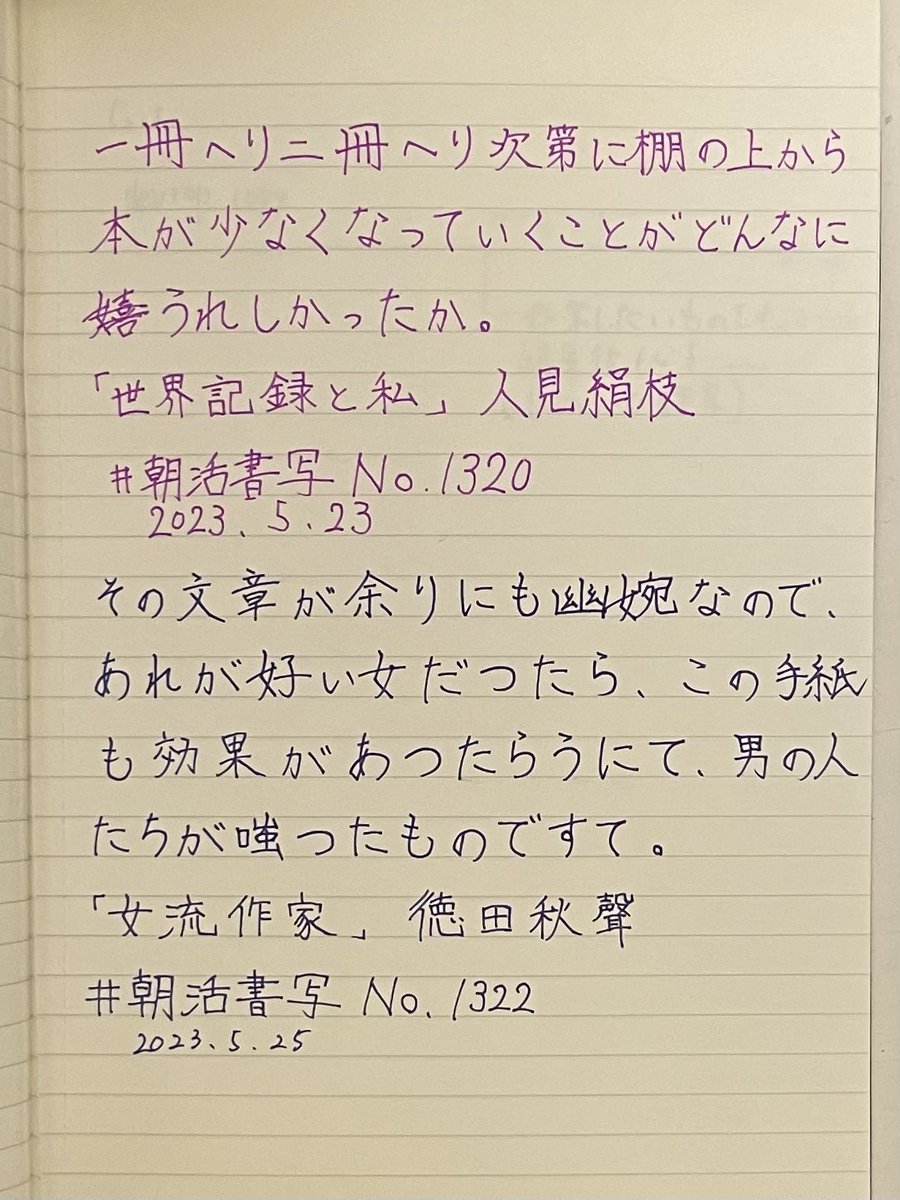 一冊へり二冊へり次第に棚の上から
本が少なくなっていくことがどんなに
嬉うれしかったか。
「世界記録と私」人見絹枝
#朝活書写 No.1320
2023.5.23
その文章が余りにも幽婉なので、
あれが好い女だつたら、この手紙
も効果があつたらうにて、男の人
たちが嗤つたものですて。
「女流作家」 徳田秋聲
#朝活書写 No.1322
2023.5.25